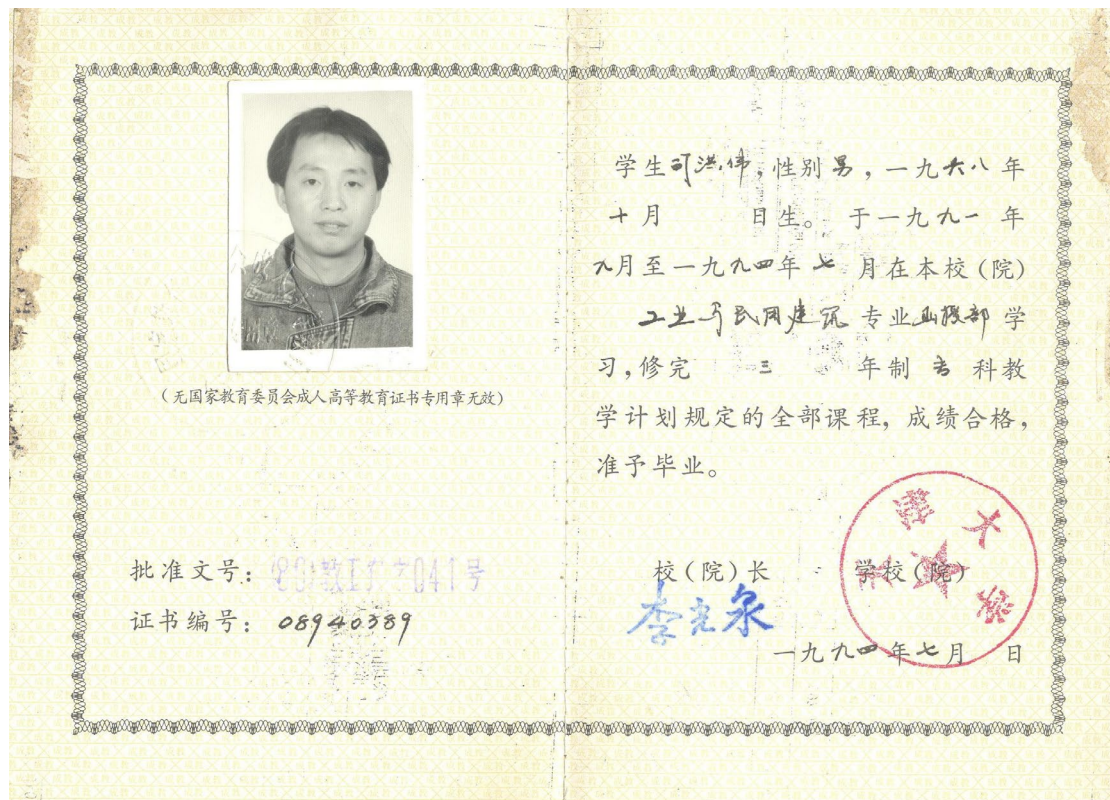 (无国家教育委员会成人高等教育证书专用章无效)
批准文号:
证书编号: 08940389
学生 洪伟,性别男,一九六八年
十月 日生。于一九九一年
九月至一九九四年七月在本校(院)
工业与民用建筑专业函授部学
习,修完三年制专科教
学计划规定的全部课程,成绩合格,
准予毕业。
校(院)长 学校(院)
李光泉
天津大学
一九九四年七月 日